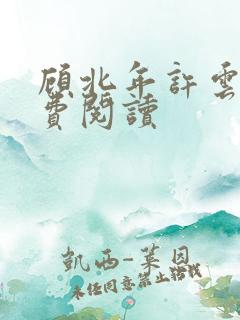 顧北年許雲
費閱讀
凱西-萊恩
未經同意禁止轉載